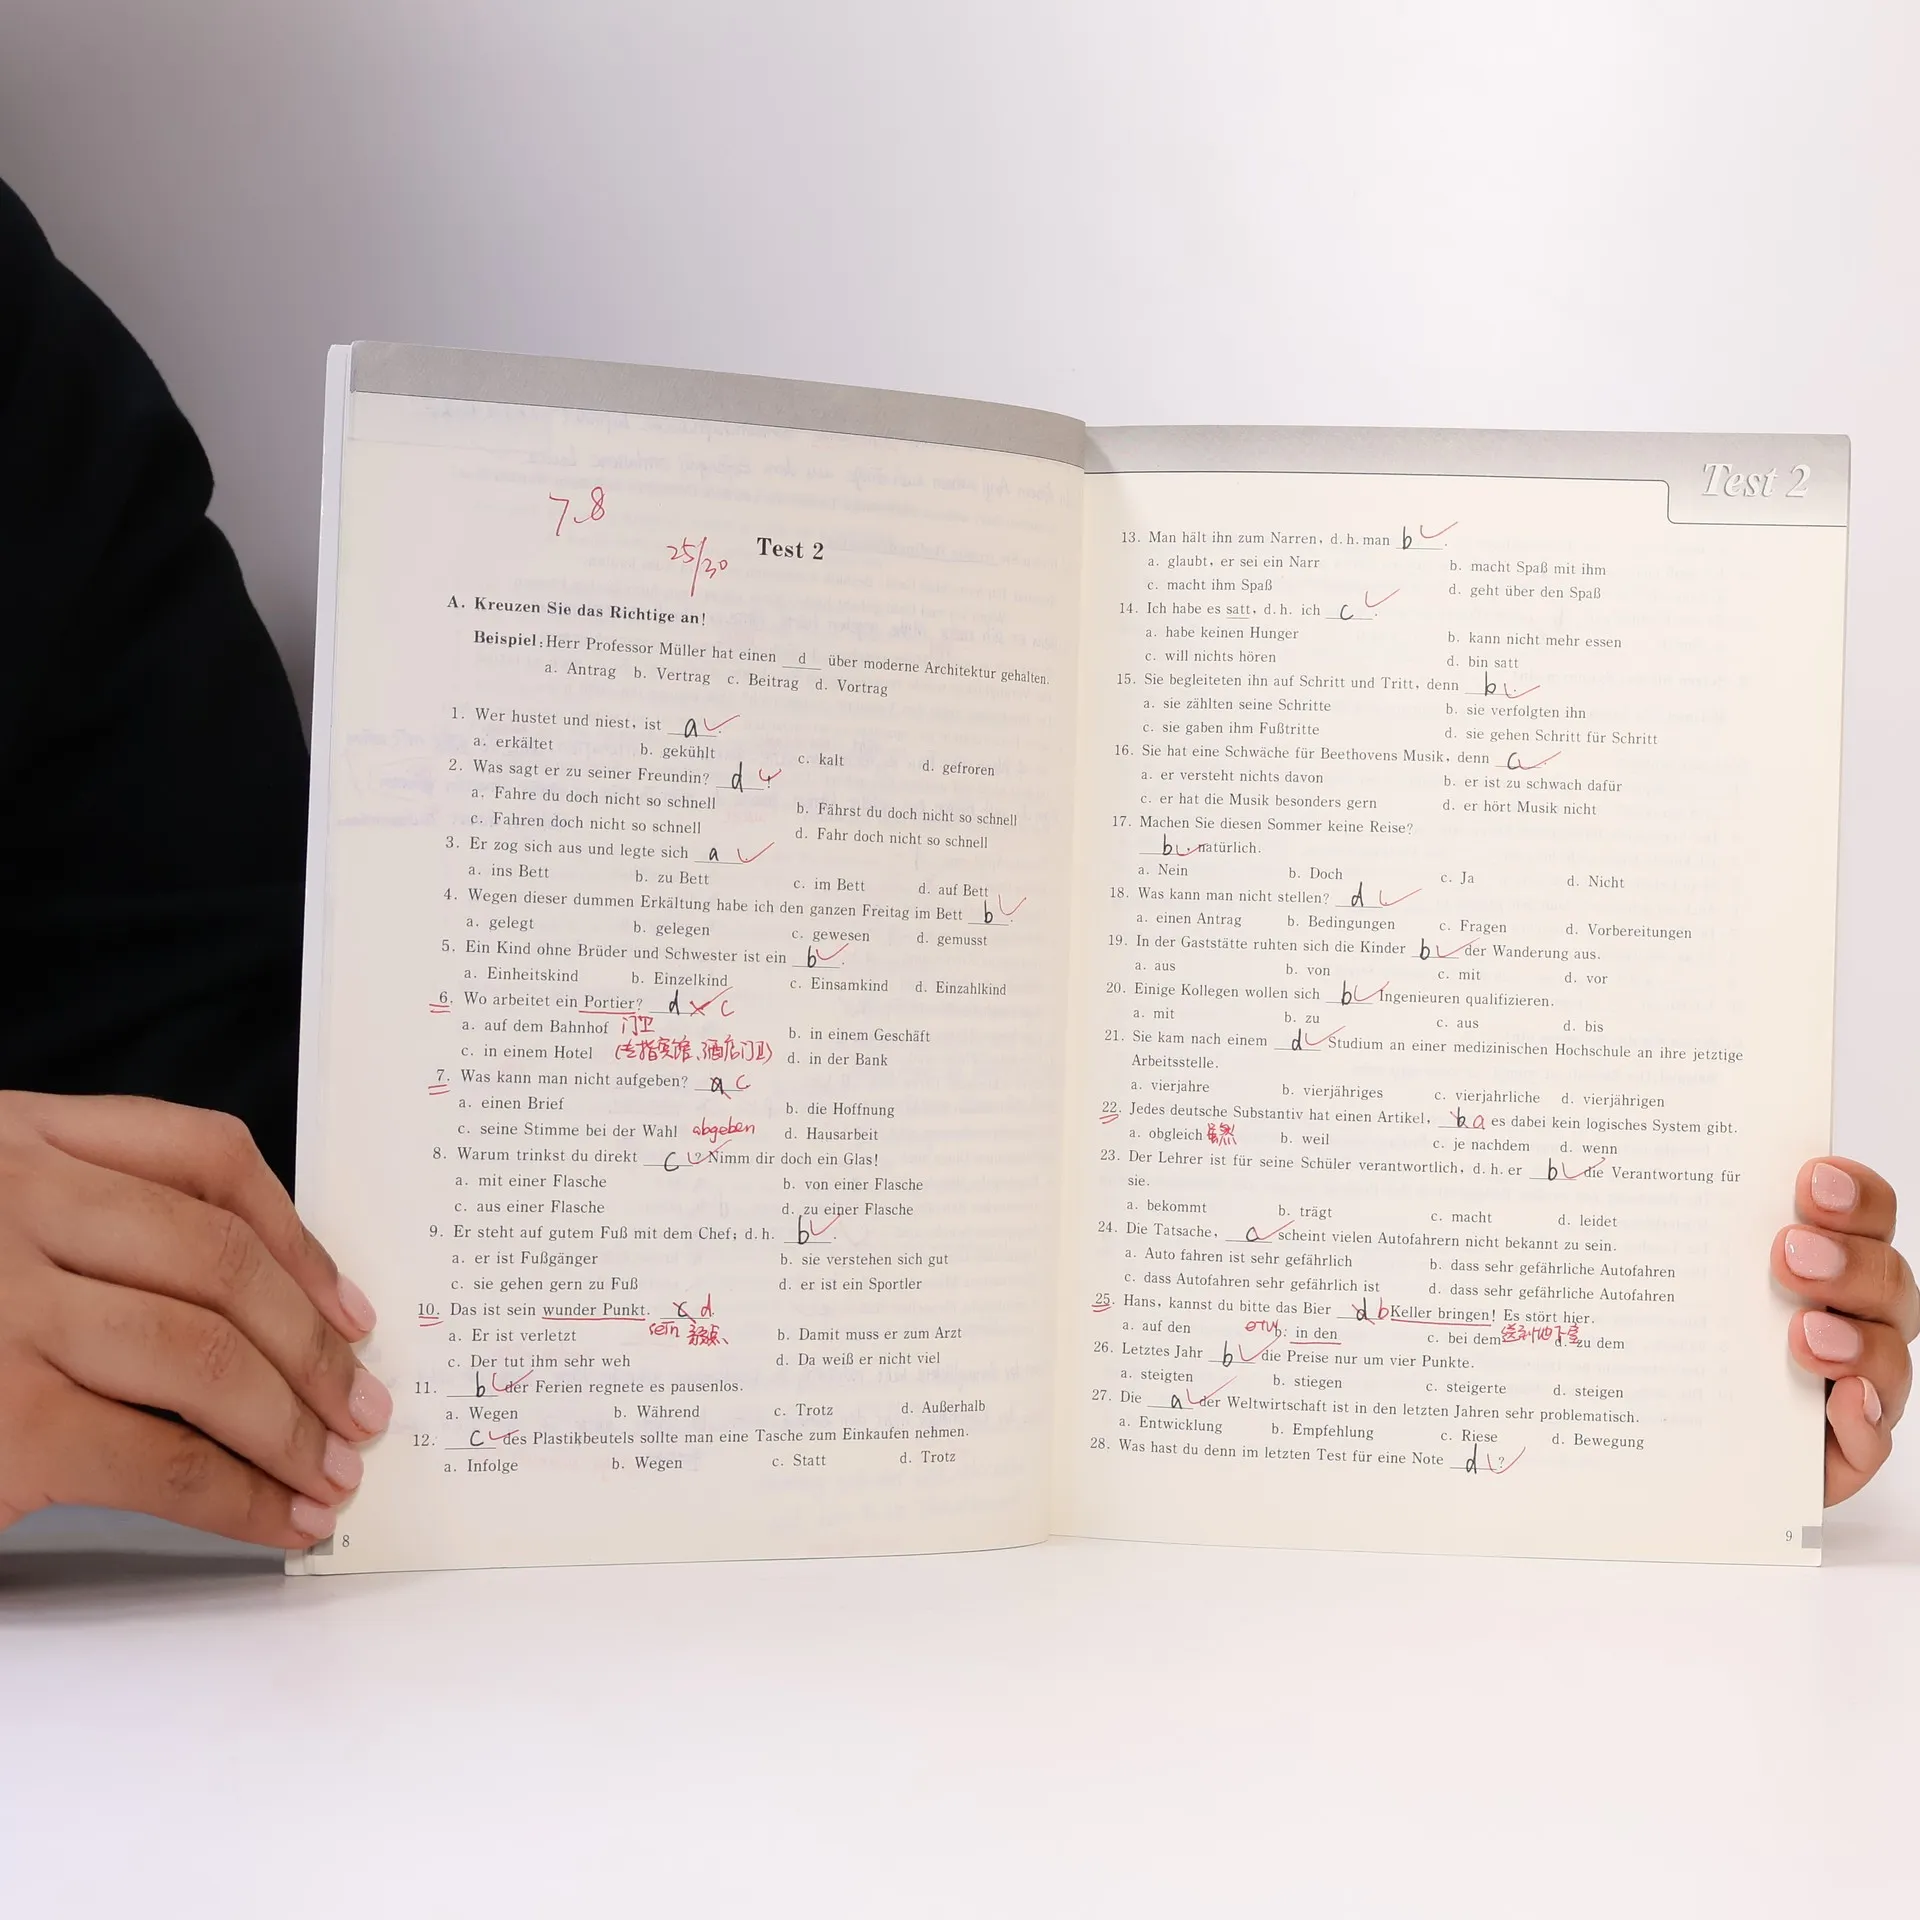 7.8
25/30
Test 2
A. Kreuzen Sie das Richtige an!
Beispiel: Herr Professor Müller hat einen d über moderne Architektur gehalten.
a. Antrag b. Vertrag c. Beitrag d. Vortrag
1. Wer hustet und niest, ist a.
a. erkältet b. gekühlt c. kalt d. gefroren
2. Was sagt er zu seiner Freundin? d
a. Fahre du doch nicht so schnell b. Fährst du doch nicht so schnell
c. Fahren doch nicht so schnell d. Fahr doch nicht so schnell
3. Er zog sich aus und legte sich a
a. ins Bett b. zu Bett c. im Bett d. auf Bett
4. Wegen dieser dummen Erkältung habe ich den ganzen Freitag im Bett b.
a. gelegt b. gelegen c. gewesen d. gemusst
5. Ein Kind ohne Brüder und Schwester ist ein b.
a. Einheitskind b. Einzelkind c. Einsamkind d. Einzahlkind
6. Wo arbeitet ein Portier? d c
a. auf dem Bahnhof 门卫 b. in einem Geschäft
c. in einem Hotel (专指宾馆、酒店门卫) d. in der Bank
7. Was kann man nicht aufgeben? a c
a. einen Brief b. die Hoffnung
c. seine Stimme bei der Wahl abgeben d. Hausarbeit
8. Warum trinkst du direkt c? Nimm dir doch ein Glas!
a. mit einer Flasche b. von einer Flasche
c. aus einer Flasche d. zu einer Flasche
9. Er steht auf gutem Fuß mit dem Chef; d.h. b.
a. er ist Fußgänger b. sie verstehen sich gut
c. sie gehen gern zu Fuß d. er ist ein Sportler
10. Das ist sein wunder Punkt. c d
sein 弱点
a. Er ist verletzt b. Damit muss er zum Arzt
c. Der tut ihm sehr weh d. Da weiß er nicht viel
11. b der Ferien regnete es pausenlos.
a. Wegen b. Während c. Trotz d. Außerhalb
12. c des Plastikbeutels sollte man eine Tasche zum Einkaufen nehmen.
a. Infolge b. Wegen c. Statt d. Trotz
8
Test 2
13. Man hält ihn zum Narren, d.h. man b.
a. glaubt, er sei ein Narr b. macht Spaß mit ihm
c. macht ihm Spaß d. geht über den Spaß
14. Ich habe es satt, d.h. ich c.
a. habe keinen Hunger b. kann nicht mehr essen
c. will nichts hören d. bin satt
15. Sie begleiteten ihn auf Schritt und Tritt, denn b.
a. sie zählten seine Schritte b. sie verfolgten ihn
c. sie gaben ihm Fußtritte d. sie gehen Schritt für Schritt
16. Sie hat eine Schwäche für Beethovens Musik, denn
a. er versteht nichts davon b. er ist zu schwach dafür
c. er hat die Musik besonders gern d. er hört Musik nicht
17. Machen Sie diesen Sommer keine Reise?
b, natürlich.
a. Nein b. Doch c. Ja d. Nicht
18. Was kann man nicht stellen? d
a. einen Antrag b. Bedingungen c. Fragen d. Vorbereitungen
19. In der Gaststätte ruhten sich die Kinder b der Wanderung aus.
a. aus b. von c. mit d. vor
20. Einige Kollegen wollen sich b Ingenieuren qualifizieren.
a. mit b. zu c. aus d. bis
21. Sie kam nach einem d Studium an einer medizinischen Hochschule an ihre jetztige
Arbeitsstelle.
a. vierjahre b. vierjähriges c. vierjahrliche d. vierjährigen
22. Jedes deutsche Substantiv hat einen Artikel, b a es dabei kein logisches System gibt.
a. obgleich 虽然 b. weil c. je nachdem d. wenn
23. Der Lehrer ist für seine Schüler verantwortlich, d.h. er b die Verantwortung für
sie.
a. bekommt b. trägt c. macht d. leidet
24. Die Tatsache, a scheint vielen Autofahrern nicht bekannt zu sein.
a. Auto fahren ist sehr gefährlich b. dass sehr gefährliche Autofahren
c. dass Autofahren sehr gefährlich ist d. dass sehr gefährliche Autofahren
25. Hans, kannst du bitte das Bier d b Keller bringen! Es stört hier.
a. auf den b. in den c. bei dem 送到地下室 d. zu dem
26. Letztes Jahr b die Preise nur um vier Punkte.
a. steigten b. stiegen c. steigerte d. steigen
27. Die a der Weltwirtschaft ist in den letzten Jahren sehr problematisch.
a. Entwicklung b. Empfehlung c. Riese d. Bewegung
28. Was hast du denn im letzten Test für eine Note d?
9